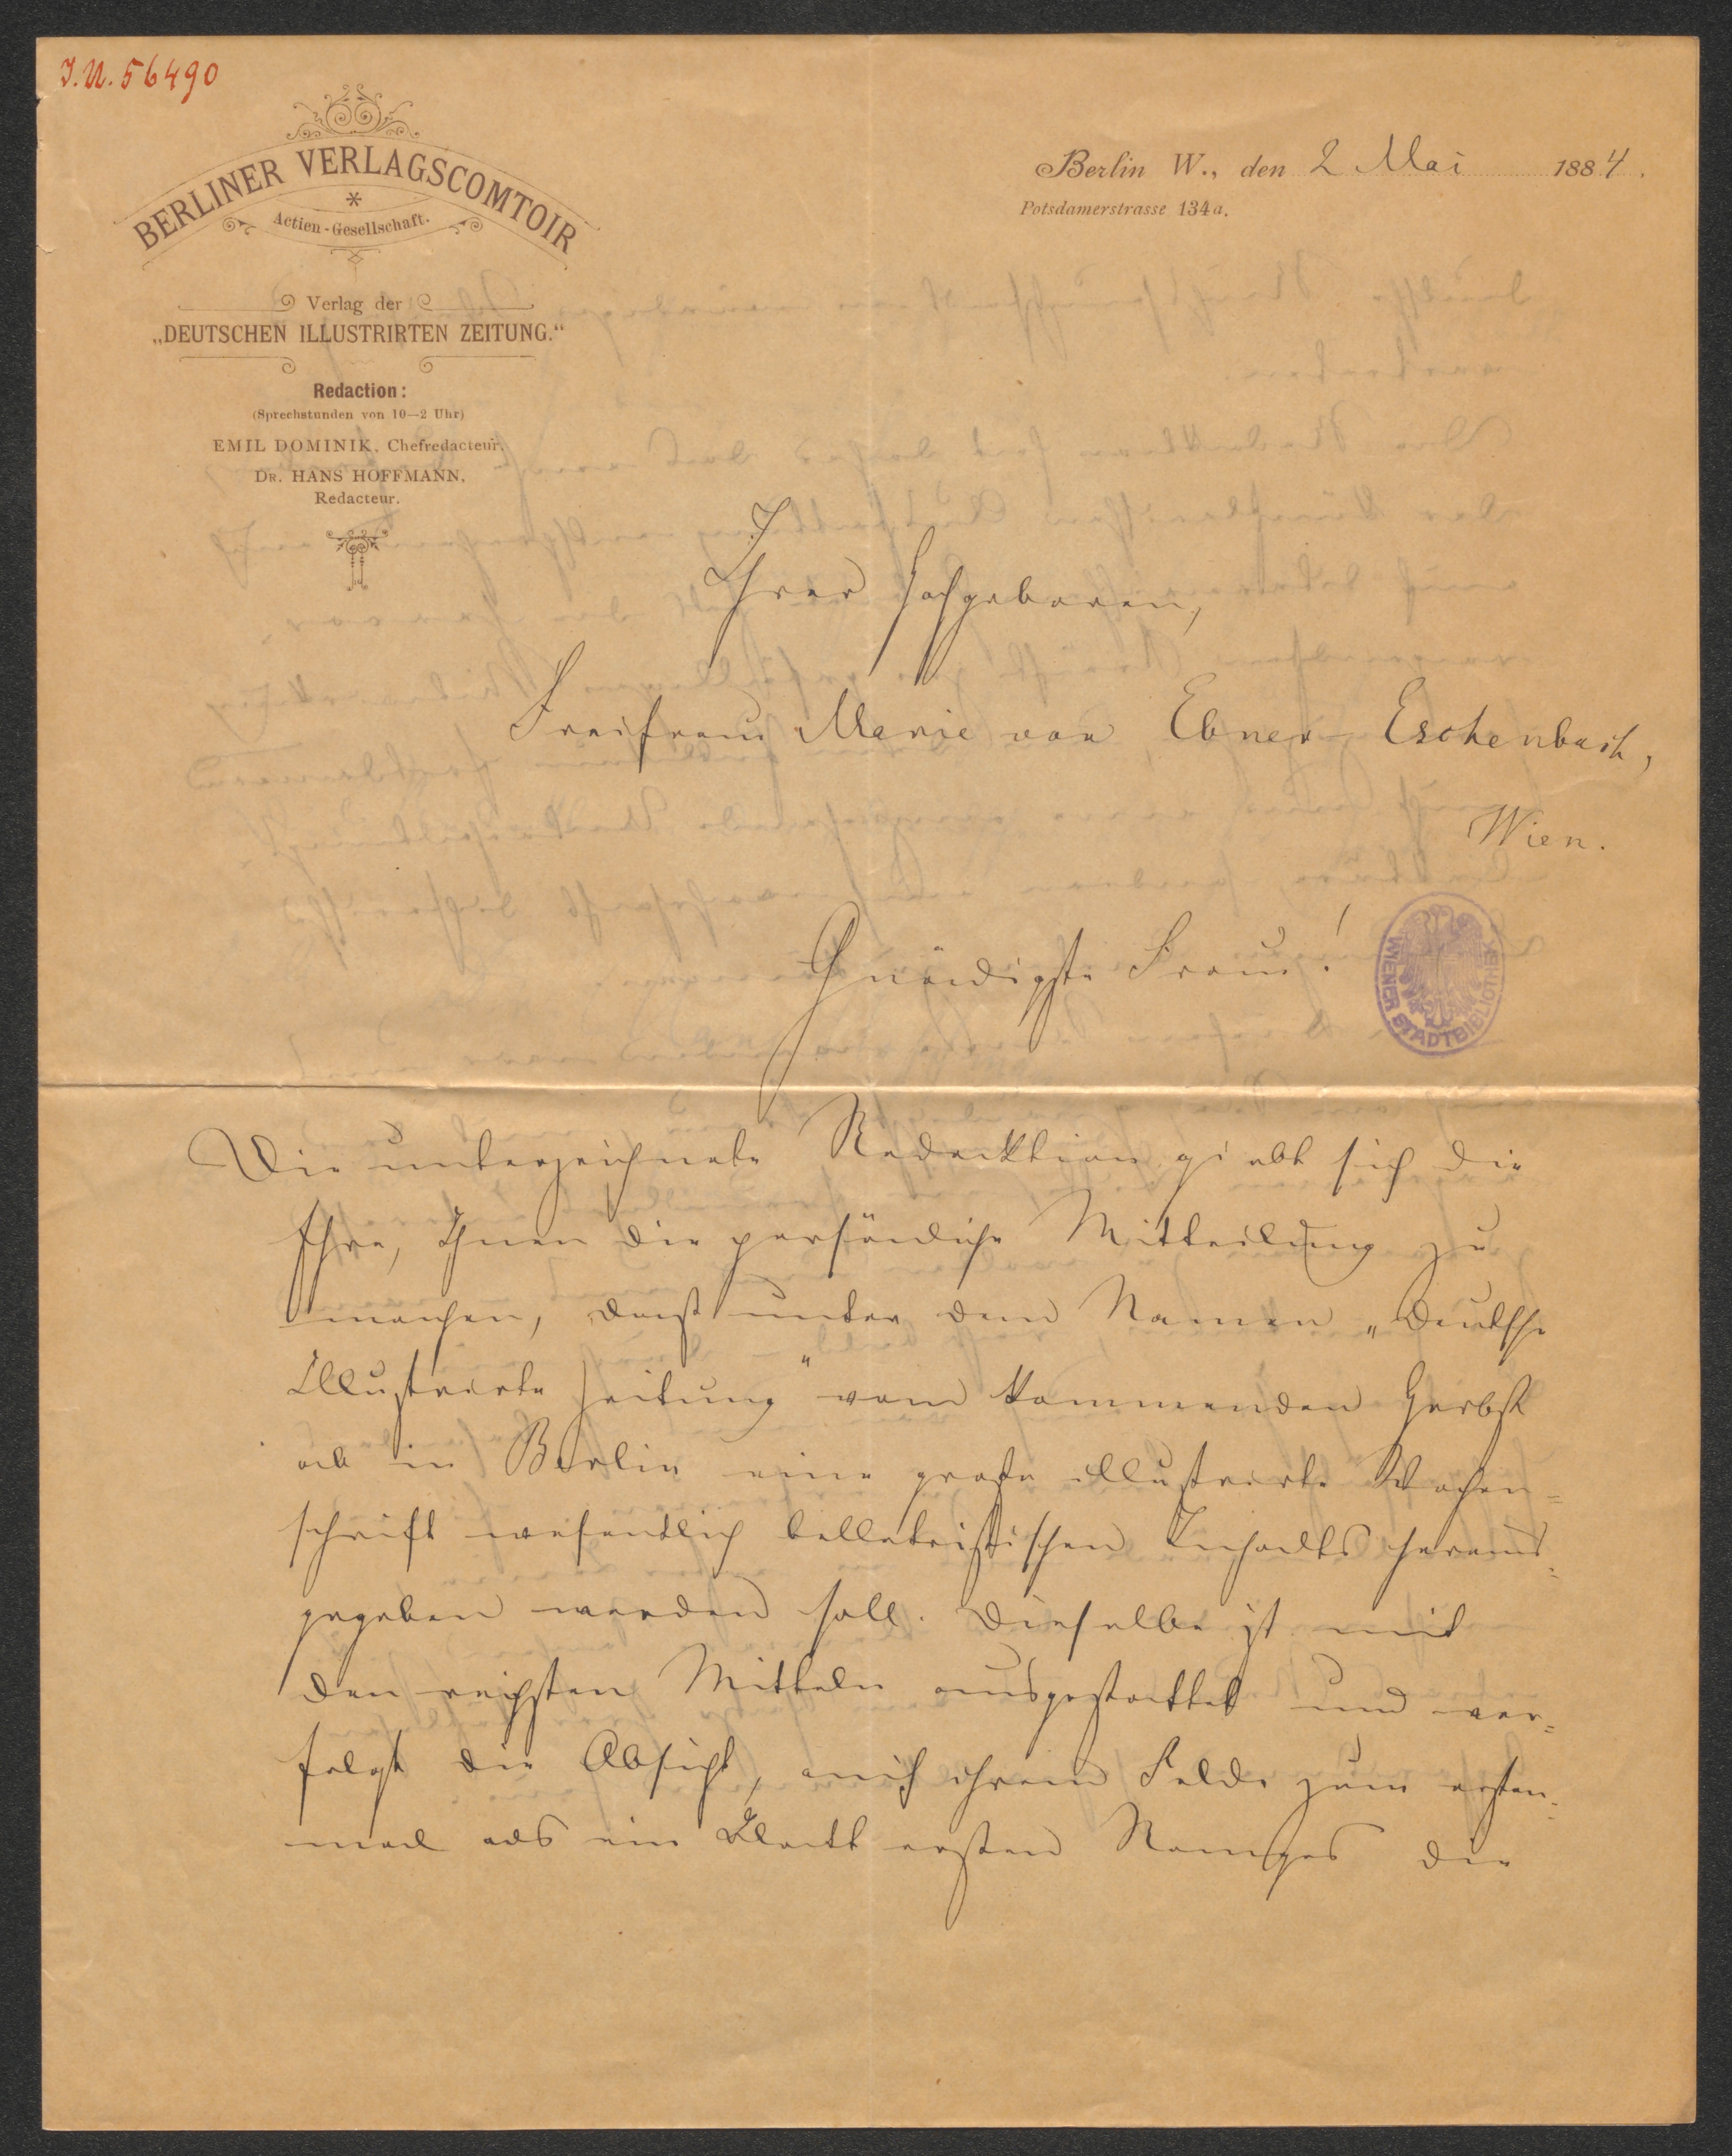 J.N. 56490
BERLINER VERLAGSCOMTOIR
*
Actien-Gesellschaft.
Verlag der
„DEUTSCHEN ILLUSTRIRTEN ZEITUNG.“
Redaction:
(Sprechstunden von 10—2 Uhr)
EMIL DOMINIK, Chefredacteur.
DR. HANS HOFFMANN,
Redacteur.
Berlin W., den 2 Mai 1884.
Potsdamerstrasse 134a.
Ihrer Hochgeboren,
Freifrau Marie von Ebner-Eschenbach,
Wien.
Gnädigste Frau!
WIENER STADTBIBLIOTHEK
Die unterzeichnete Redacktion giebt sich die
Ehre, Ihnen die persönliche Mitteilung zu
machen, daß unter dem Namen „Deutsche
Illustrirte Zeitung“ vom kommenden Herbst
ab in Berlin eine große illustrirte Wochen=
schrift wesentlich belletristischen Inhalts heraus=
gegeben werden soll. Dieselbe ist mit
den reichsten Mitteln ausgestattet und ver=
folgt die Absicht, auf ihrem Felde zum ersten=
mal als ein Blatt ersten Ranges die